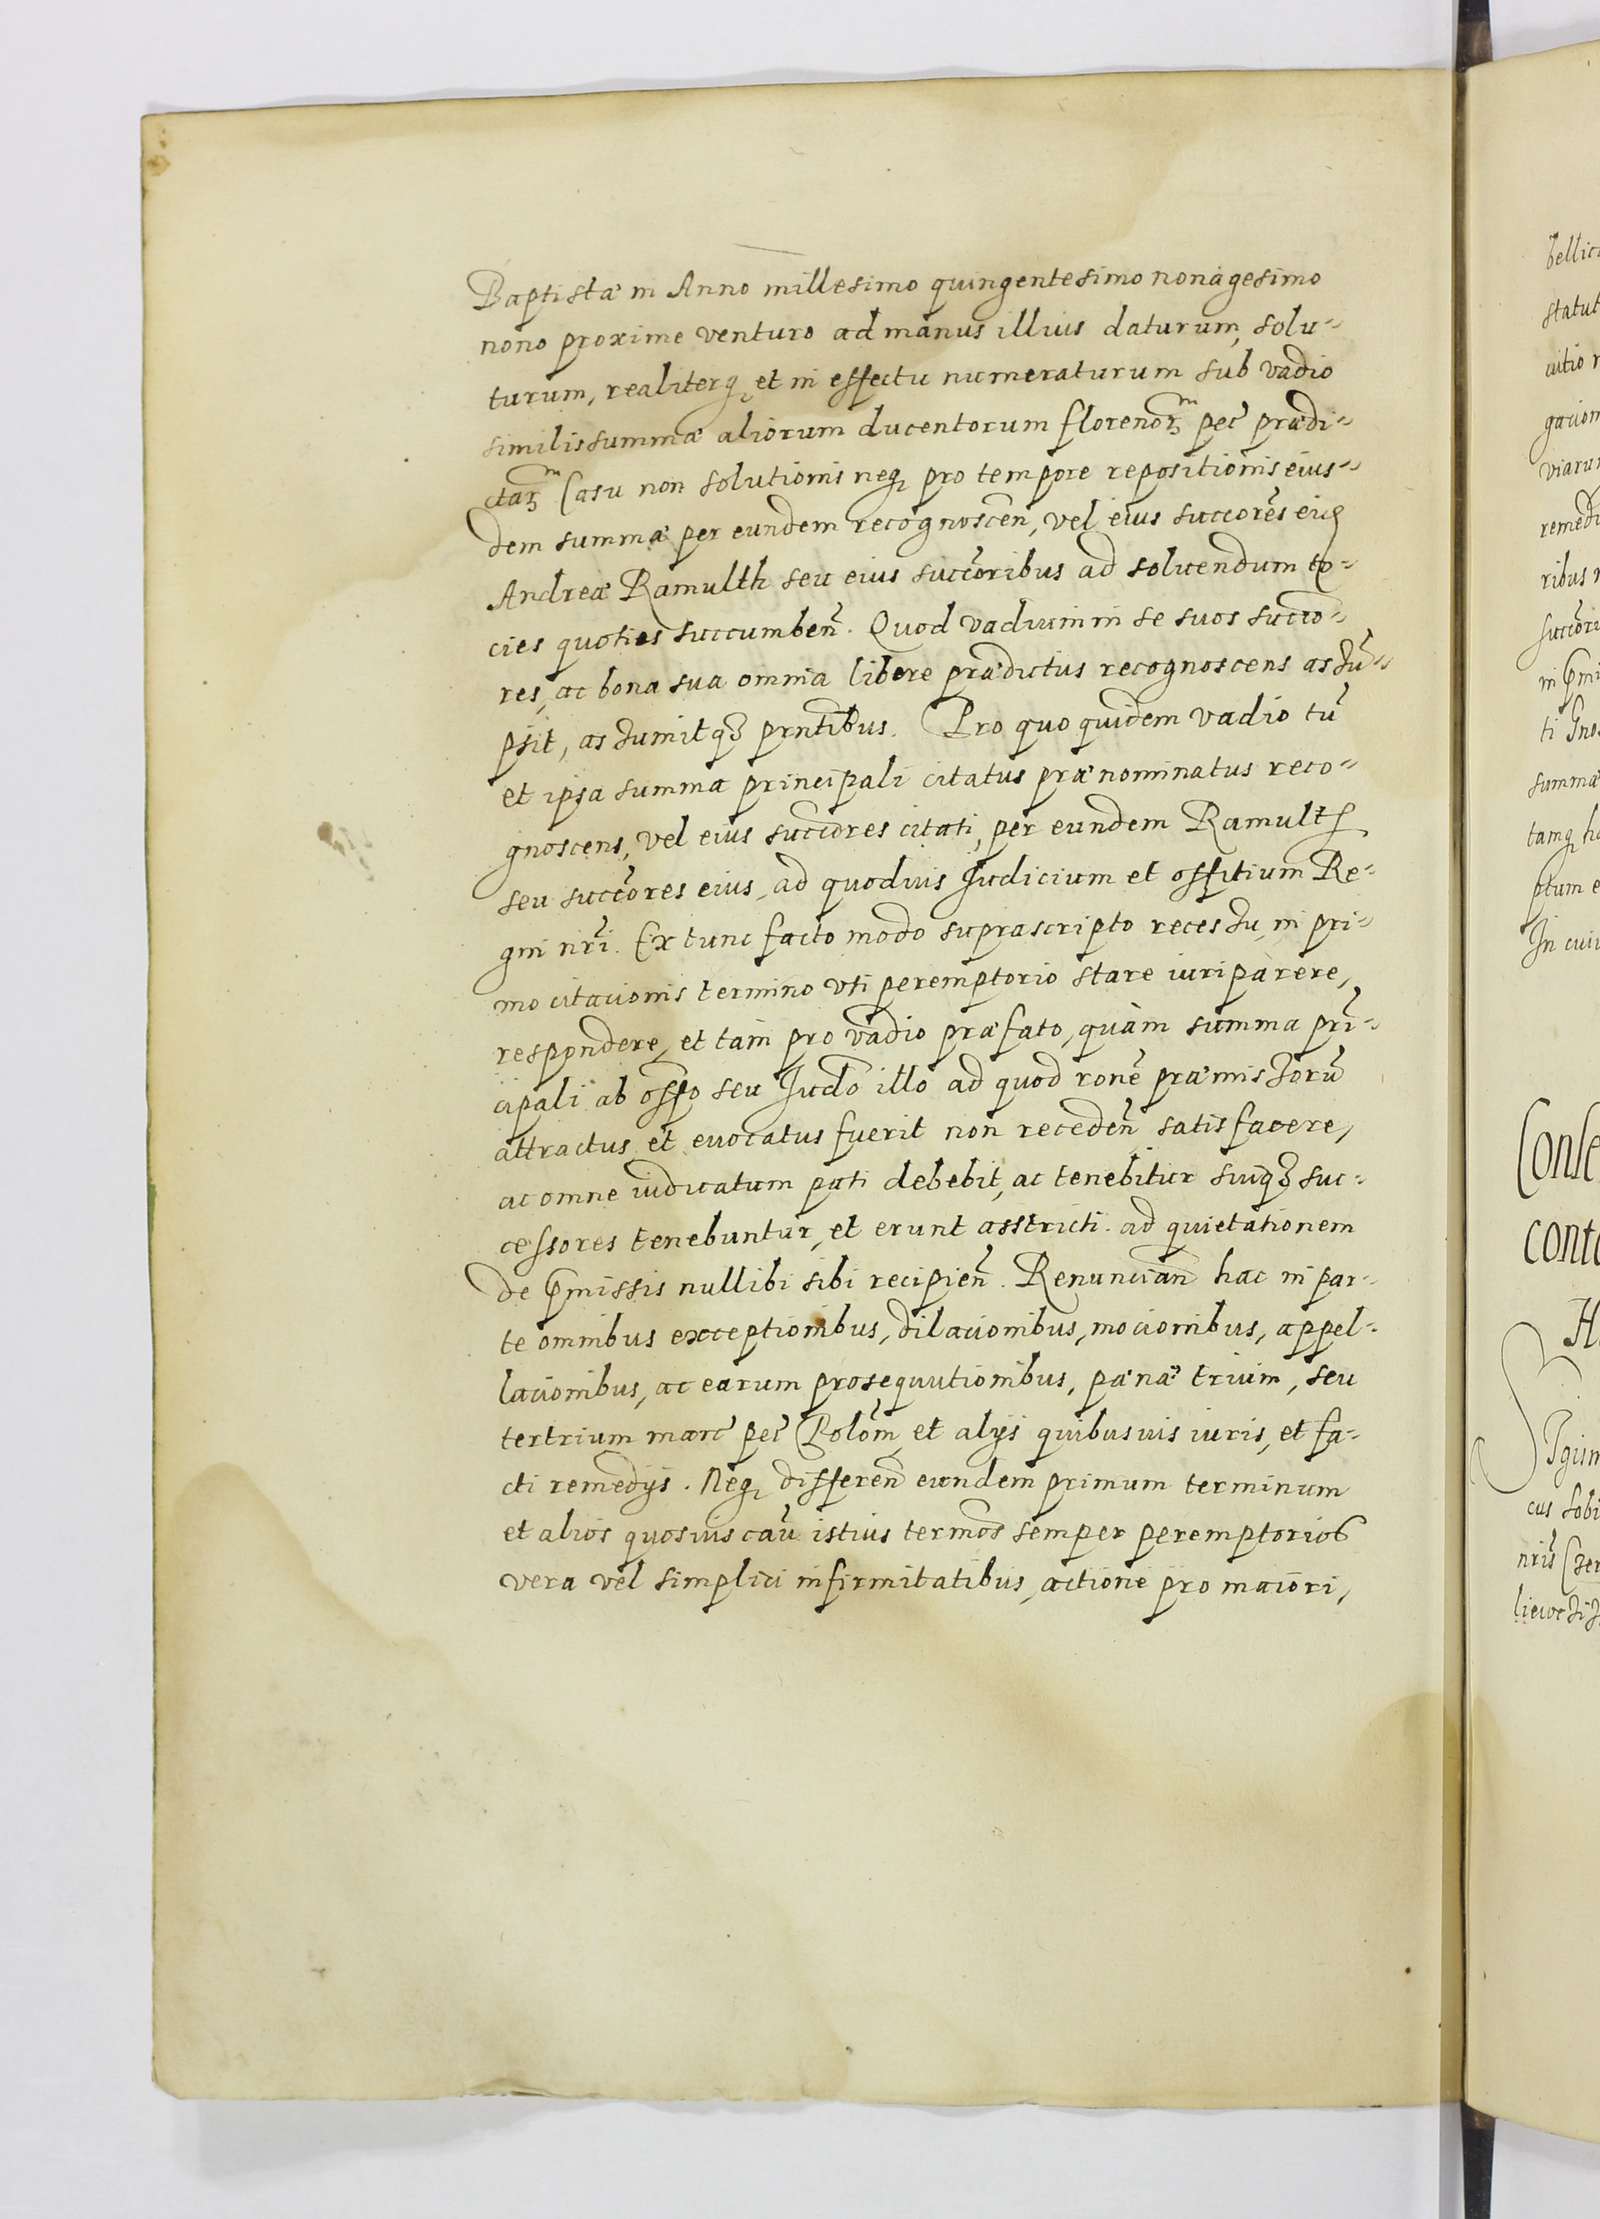 Baptistæ in Anno millesimo quingentesimo nonagesimo
nono proxime venturo ad manus illius daturum, solu-
turum, realiterq, et in effectu numeraturum sub vadio
similis summæ aliorum ducentorum florenorm pec prædi-
ctarm Casu non solutionis neq pro tempore repositionis eius-
dem summæ per eundem recognoscen, vel eius succores eidem
Andreæ Ramulth seu eius succoribus ad solvendum to-
cies quoties succumben. Quod vadium in se suos succo-
res, ac bona sua omnia libere prædictus recognoscens assu-
psit, assumitq3 prntibus. Pro quo quidem vadio tū
et ipsa summa principali citatus prænominatus reco-
gnoscens, vel eius succores citati, per eundem Ramulth
seu succores eius, ad quodvis Judicium et offitium Re-
gni nri. Ex tunc facto modo suprascripto recessu, in pri-
mo citacionis termino vti peremptorio stare iuri parere,
respondere, et tam pro vadio præfato, quam summa prin-
cipali ab offo seu Judo illo ad quod rone præmissorū
attractus et evocatus fuerit non receden satisfacere,
ac omne iudicatum pati debebit, ac tenebitur suiq3 suc-
cessores tenebuntur, et erunt asstricti. ad quietationem
de pmissis nullibi sibi recipien. Renuncian hac in par-
te omnibus exceptionibus, dilacionibus, mocionibus, appel-
lacionibus, ac earum prosequutionibus, pænæ trium, seu
tertrium marc pec Polom, et alijs quibusvis iuris, et fa-
cti remedijs. Neq differen eundem primum terminum
et alios quosvis cau istius termos semper peremptorios
vera vel simplici infirmitatibus, actione pro maiori,
bellic
statut
citio
gacion
viarum
remedi
ribus
succori
in pmi
ti
summæ
tamq
ptum e
In cuiu
Conse
conte
H
Sigism
cus
nris